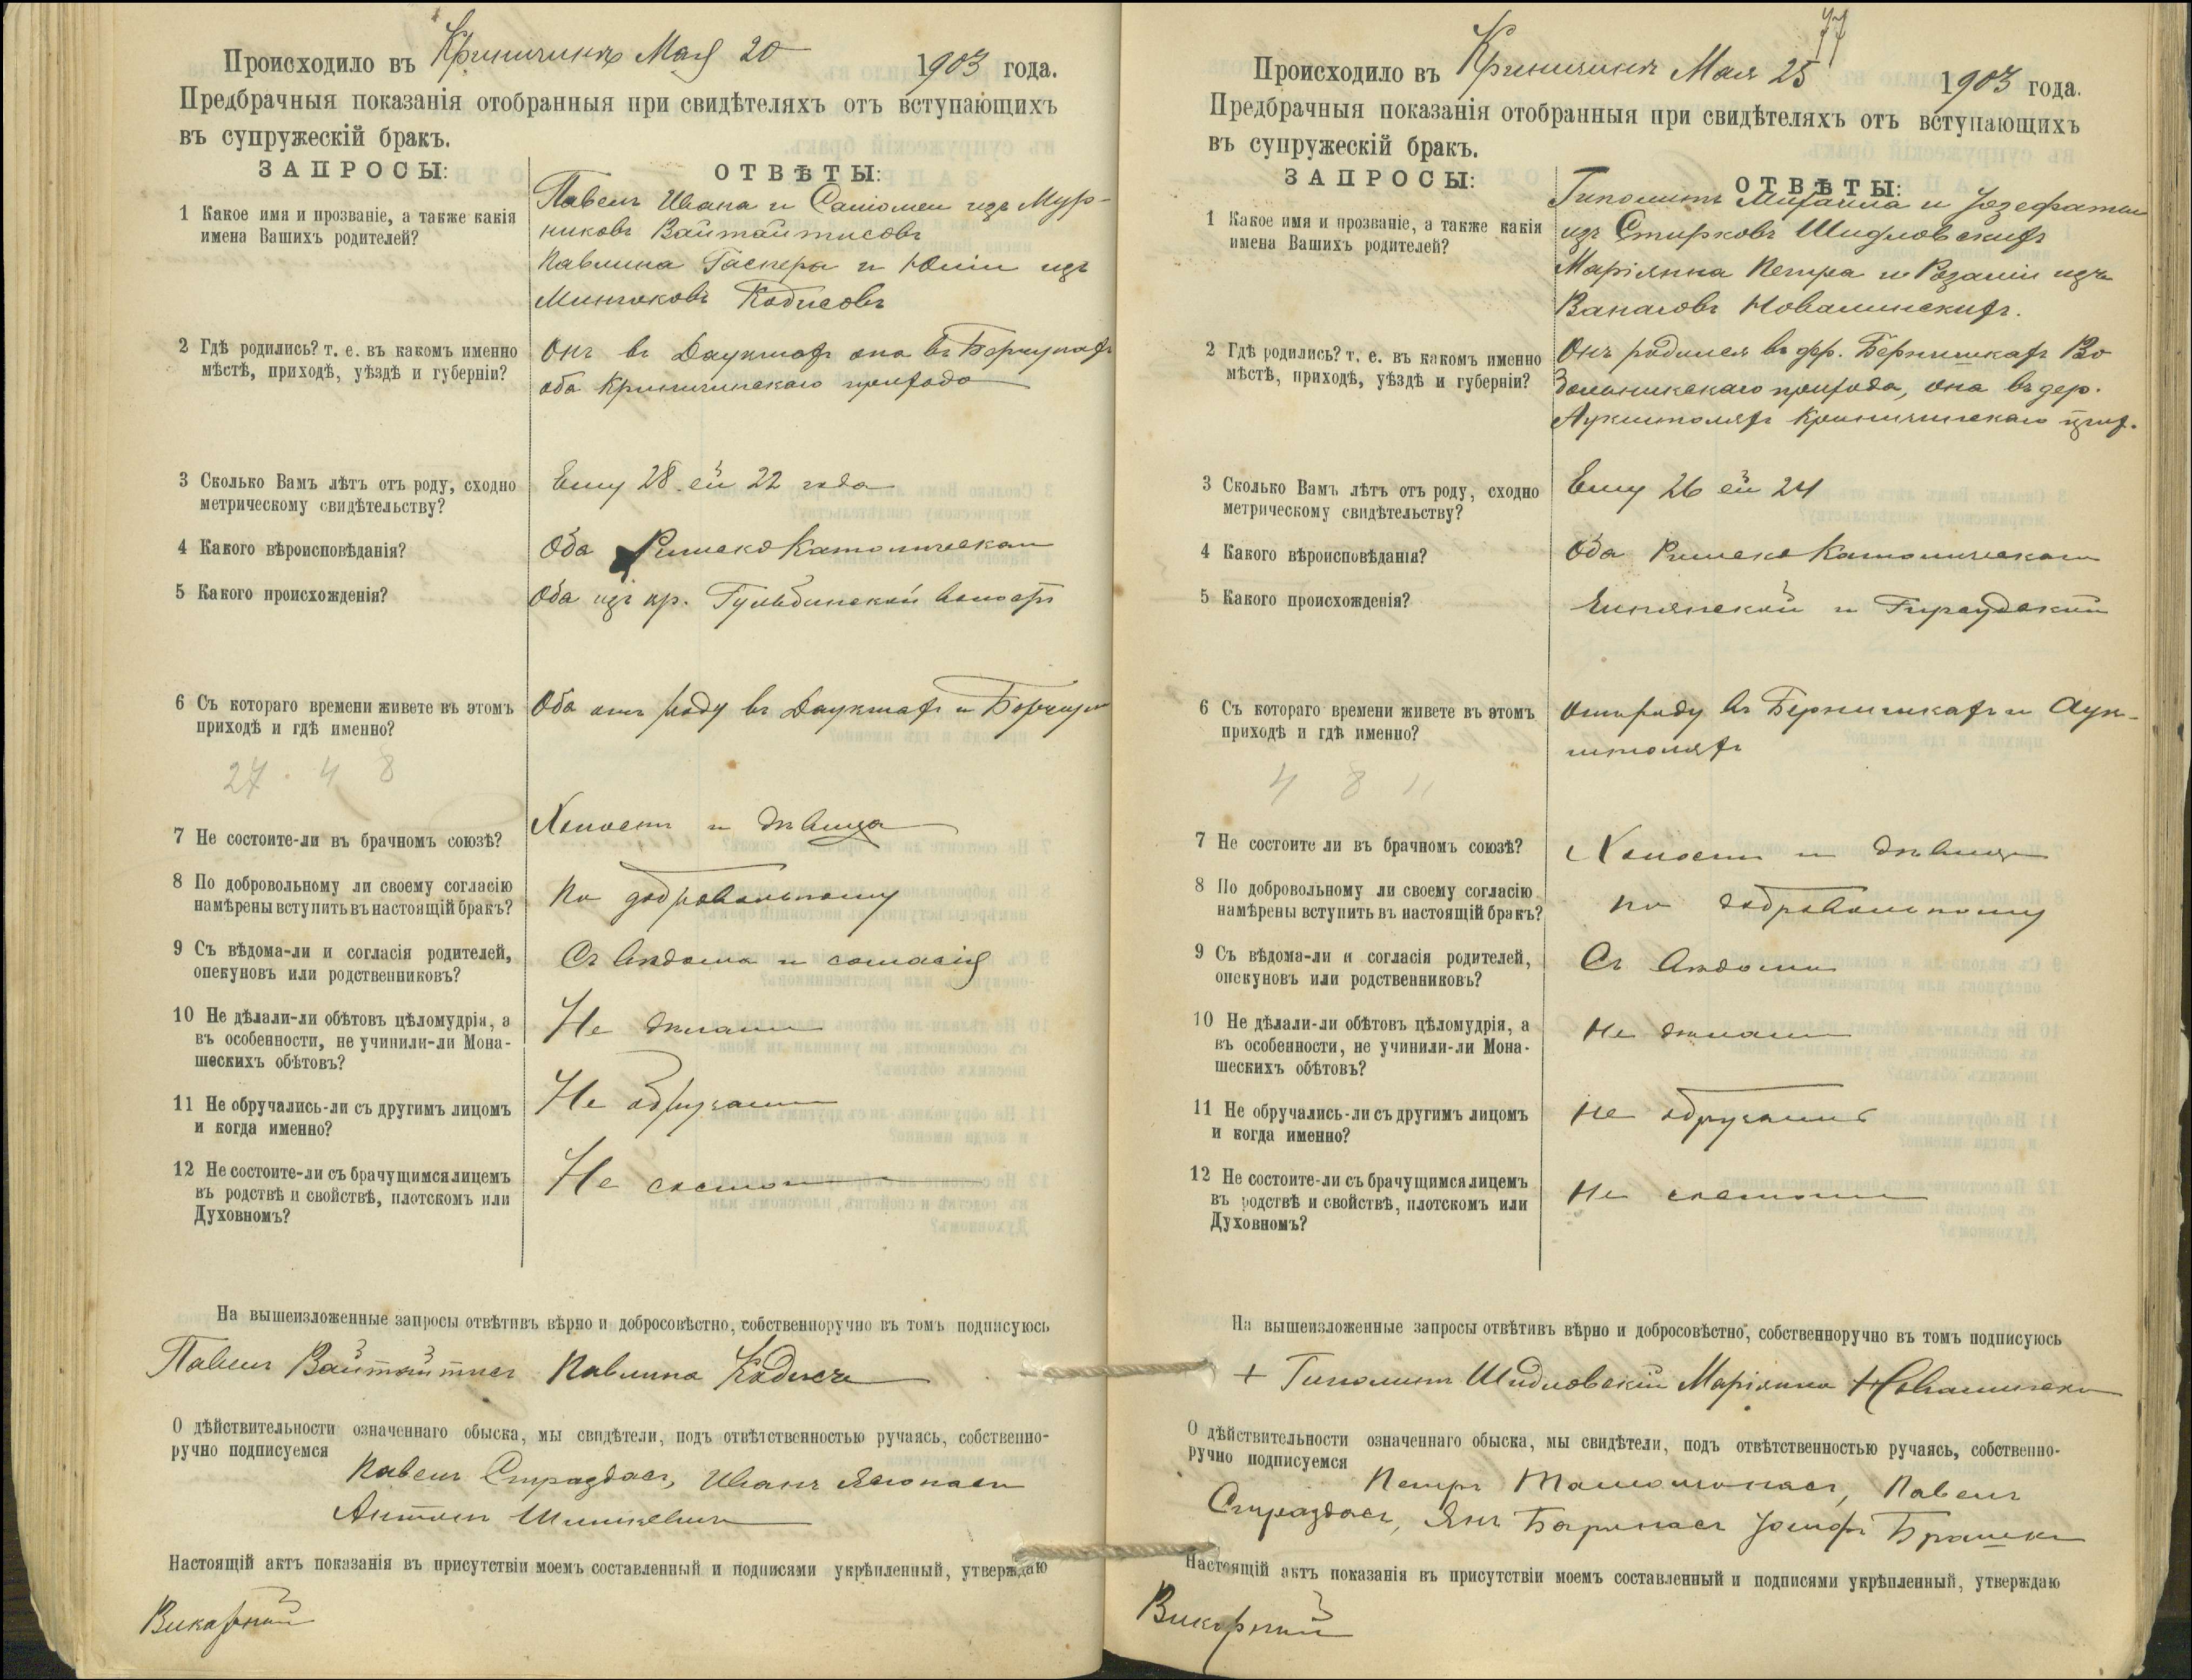 Происходило въ Криничинѣ Мая 20 1903 года.
Предбрачныя показанія отобранныя при свидѣтеляхъ отъ вступающихъ
въ супружескій бракъ.
ЗАПРОСЫ: ОТВѢТЫ:
1 Какое имя и прозваніе, а также какія
имена Вашихъ родителей?
Павелъ Ивана и Саломеи изъ Мур-
никовъ Вайтайтисовъ
Павлина Гаспера и Юліи изъ
Кодисовъ
2 Гдѣ родились? т. е. въ какомъ именно
мѣстѣ, приходѣ, уѣздѣ и губерніи?
Онъ въ Даукшахъ она въ
оба Криничинскаго прихода
3 Сколько Вамъ лѣтъ отъ роду, сходно
метрическому свидѣтельству?
Ему 28 ей 22 года
4 Какого вѣроисповѣданія?
Оба Римско Католическаго
5 Какого происхожденія?
Оба изъ кр. Гульбинской волости
6 Съ котораго времени живете въ этомъ
приходѣ и гдѣ именно?
Оба отъ роду въ Даукшахъ и
27. 4 8
7 Не состоите-ли въ брачномъ союзѣ?
Холостъ и дѣвица
8 По добровольному ли своему согласію
намѣрены вступить въ настоящій бракъ?
По добровольному
9 Съ вѣдома-ли и согласія родителей,
опекуновъ или родственниковъ?
Съ вѣдома и согласія
10 Не дѣлали-ли обѣтовъ цѣломудрія, а
въ особенности, не учинили-ли Мона-
шескихъ обѣтовъ?
Не дѣлали
11 Не обручались-ли съ другимъ лицомъ
и когда именно?
Не обручались
12 Не состоите-ли съ брачущимся лицемъ
въ родствѣ и свойствѣ, плотскомъ или
Духовномъ?
Не состоимъ
На вышеизложенные запросы отвѣтивъ вѣрно и добросовѣстно, собственноручно въ томъ подписуюсь
Павелъ Вайтайтисъ Павлина Кодисъ
О дѣйствительности означеннаго обыска, мы свидѣтели, подъ отвѣтственностью ручаясь, собственно-
ручно подписуемся
Павелъ Страздасъ, Иванъ
Антонъ
Настоящій актъ показанія въ присутствіи моемъ составленный и подписями укрѣпленный, утверждаю
Викарный
77
Происходило въ Криничинѣ Мая 25 1903 года.
Предбрачныя показанія отобранныя при свидѣтеляхъ отъ вступающихъ
въ супружескій бракъ.
ЗАПРОСЫ: ОТВѢТЫ:
1 Какое имя и прозваніе, а также какія
имена Вашихъ родителей?
Гиполитъ Михаила и Іозефаты
изъ Стирковъ Шидловскихъ
Маріянна Петра и Розаліи изъ
Ванаговъ Новалинскихъ.
2 Гдѣ родились? т. е. въ какомъ именно
мѣстѣ, приходѣ, уѣздѣ и губерніи?
Онъ родился въ дер. Бернишкахъ Во
прихода, она въ дер.
Аукштоляхъ Криничинскаго прих.
3 Сколько Вамъ лѣтъ отъ роду, сходно
метрическому свидѣтельству?
Ему 26 ей 24
4 Какого вѣроисповѣданія?
Оба Римско Католическаго
5 Какого происхожденія?
и Гирсудской
6 Съ котораго времени живете въ этомъ
приходѣ и гдѣ именно?
Отъ роду въ Бернишкахъ и Аук-
штоляхъ
4 8 11
7 Не состоите ли въ брачномъ союзѣ?
Холостъ и дѣвица
8 По добровольному ли своему согласію
намѣрены вступить въ настоящій бракъ?
По добровольному
9 Съ вѣдома-ли и согласія родителей,
опекуновъ или родственниковъ?
Съ вѣдома
10 Не дѣлали-ли обѣтовъ цѣломудрія, а
въ особенности, не учинили-ли Мона-
шескихъ обѣтовъ?
Не дѣлали
11 Не обручались-ли съ другимъ лицомъ
и когда именно?
Не обручались
12 Не состоите-ли съ брачущимся лицемъ
въ родствѣ и свойствѣ, плотскомъ или
Духовномъ?
Не состоимъ
На вышеизложенные запросы отвѣтивъ вѣрно и добросовѣстно, собственноручно въ томъ подписуюсь
+ Гиполитъ Шидловскій Маріянна +
О дѣйствительности означеннаго обыска, мы свидѣтели, подъ отвѣтственностью ручаясь, собственно-
ручно подписуемся
Петръ Тамошонасъ, Павелъ
Страздасъ, Янъ Іосифъ
Настоящій актъ показанія въ присутствіи моемъ составленный и подписями укрѣпленный, утверждаю
Викарный